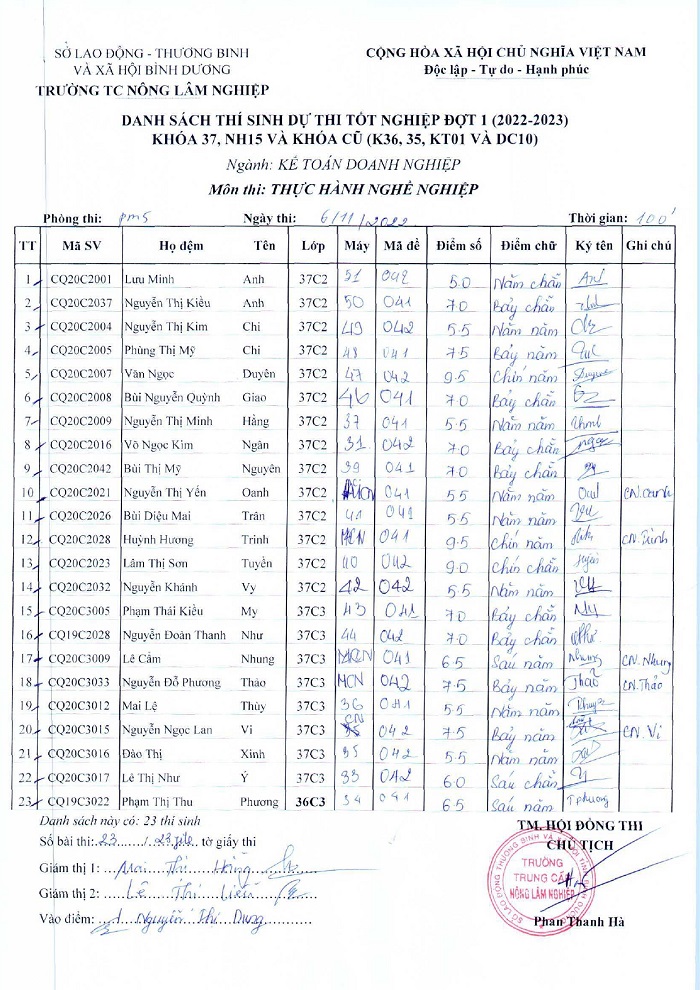 SỞ LAO ĐỘNG - THƯƠNG BINH
VÀ XÃ HỘI BÌNH DƯƠNG
TRƯỜNG TC NÔNG LÂM NGHIỆP
CỘNG HÒA XÃ HỘI CHỦ NGHĨA VIỆT NAM
Độc lập - Tự do - Hạnh phúc
DANH SÁCH THÍ SINH DỰ THI TỐT NGHIỆP ĐỢT 1 (2022-2023)
KHÓA 37, NH15 VÀ KHÓA CŨ (K36, 35, KT01 VÀ DC10)
Ngành: KẾ TOÁN DOANH NGHIỆP
Môn thi: THỰC HÀNH NGHỀ NGHIỆP
Phòng thi: pm5 Ngày thi: 6/11/2022 Thời gian: 100'
TT Mã SV Họ đệm Tên Lớp Máy Mã đề Điểm số Điểm chữ Ký tên Ghi chú
1 CQ20C2001 Lưu Minh Anh 37C2 51 042 5.0 Năm chẵn
2 CQ20C2037 Nguyễn Thị Kiều Anh 37C2 50 041 7.0 Bảy chẵn
3 CQ20C2004 Nguyễn Thị Kim Chi 37C2 49 042 5.5 Năm năm
4 CQ20C2005 Phùng Thị Mỹ Chi 37C2 48 041 7.5 Bảy năm
5 CQ20C2007 Văn Ngọc Duyên 37C2 47 042 9.5 Chín năm
6 CQ20C2008 Bùi Nguyễn Quỳnh Giao 37C2 46 041 7.0 Bảy chẵn
7 CQ20C2009 Nguyễn Thị Minh Hằng 37C2 37 041 5.5 Năm năm
8 CQ20C2016 Võ Ngọc Kim Ngân 37C2 31 042 7.0 Bảy chẵn
9 CQ20C2042 Bùi Thị Mỹ Nguyên 37C2 39 041 7.0 Bảy chẵn
10 CQ20C2021 Nguyễn Thị Yến Oanh 37C2 041 5.5 Năm năm CN.oanh
11 CQ20C2026 Bùi Diệu Mai Trân 37C2 41 041 5.5 Năm năm
12 CQ20C2028 Huỳnh Hương Trinh 37C2 MCN 041 9.5 Chín năm CN.Trinh
13 CQ20C2023 Lâm Thị Sơn Tuyền 37C2 40 042 9.0 Chín chẵn
14 CQ20C2032 Nguyễn Khánh Vy 37C2 42 042 5.5 Năm năm
15 CQ20C3005 Phạm Thái Kiều My 37C3 43 041 7.0 Bảy chẵn
16 CQ19C2028 Nguyễn Đoàn Thanh Như 37C3 44 042 7.0 Bảy chẵn
17 CQ20C3009 Lê Cẩm Nhung 37C3 MCN 041 6.5 Sáu năm Nhung CN.Nhung
18 CQ20C3033 Nguyễn Đỗ Phương Thảo 37C3 MCN 042 7.5 Bảy năm Thảo CN.Thảo
19 CQ20C3012 Mai Lệ Thủy 37C3 36 041 5.5 Năm năm
20 CQ20C3015 Nguyễn Ngọc Lan Vi 37C3 CN 042 7.5 Bảy năm CN.Vi
21 CQ20C3016 Đào Thị Xinh 37C3 35 042 5.5 Năm năm
22 CQ20C3017 Lê Thị Như Ý 37C3 33 042 6.0 Sáu chẵn
23 CQ19C3022 Phạm Thị Thu Phương 36C3 34 041 6.5 Sáu năm T phương
Danh sách này có: 23 thí sinh
Số bài thi: 23 / 23 tờ giấy thi
Giám thị 1: Mai Thị Hồng
Giám thị 2: Lê Thị
Vào điểm: Nguyễn Thị Dung
TM. HỘI ĐỒNG THI
CHỦ TỊCH
TRƯỜNG
TRUNG CẤP
NÔNG LÂM NGHIỆP
Phan Thanh Hà